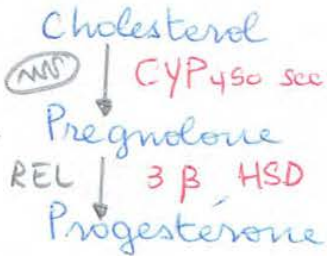 Cholesterol
CYP450 scc
Pregnolone
REL 3 β HSD
Progestérone